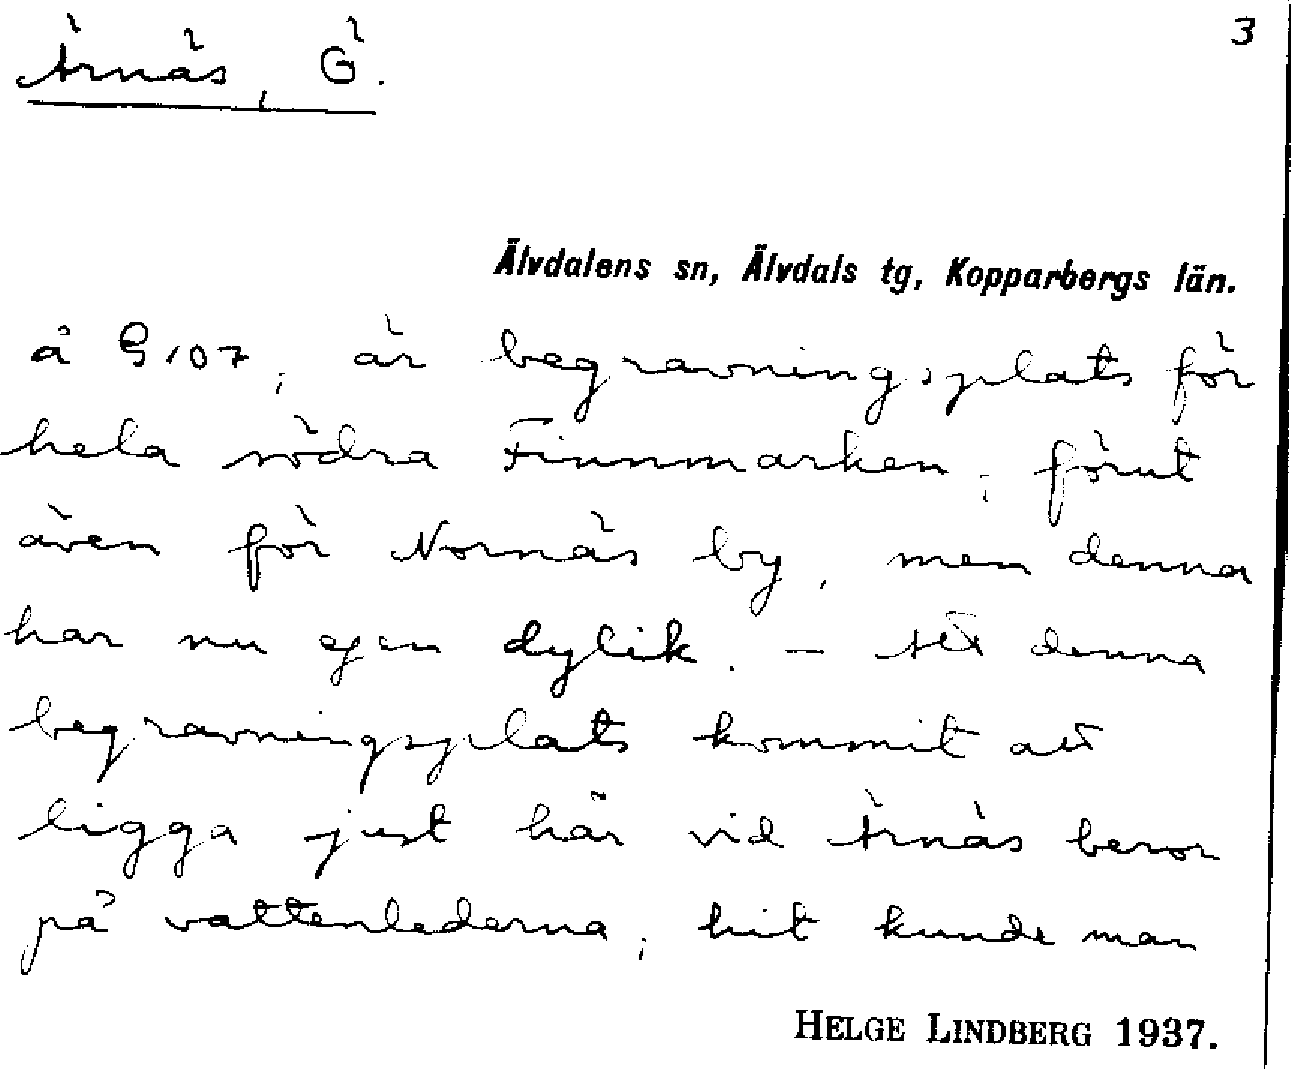 Ärnäs, Ö.
3
Älvdalens sn, Älvdals tg, Kopparbergs län.
å 107, är begravningsplats för
hela södra Finnmarken, förut
även för Nornäs by, men denna
har nu egen dylik. – Att denna
begravningsplats kommit att
ligga just här vid Ärnäs beror
på vattenlederna, hit kunde man
HELGE LINDBERG 1937.